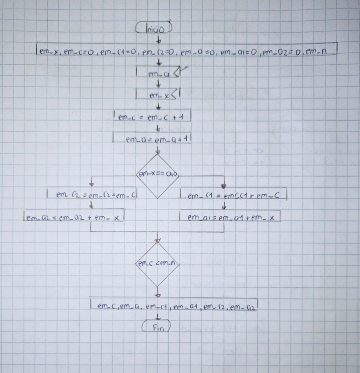 Inicio
em_x, em_c=0, em_c1=0, em_c2=0, em_a=0, em_a1=0, em_a2=0, em_n
em_a
em_x
em_c = em_c + 1
em_a = em_a + 1
em_x ==
em_c2 = em_c2+em_c
em_c1 = em_c1 + em_c
em_a2 = em_a2 + em_x
em_a1 = em_a1 + em_x
em_c < em_n
em_c, em_a, em_c1, em_a1, em_c2, em_a2
Fin